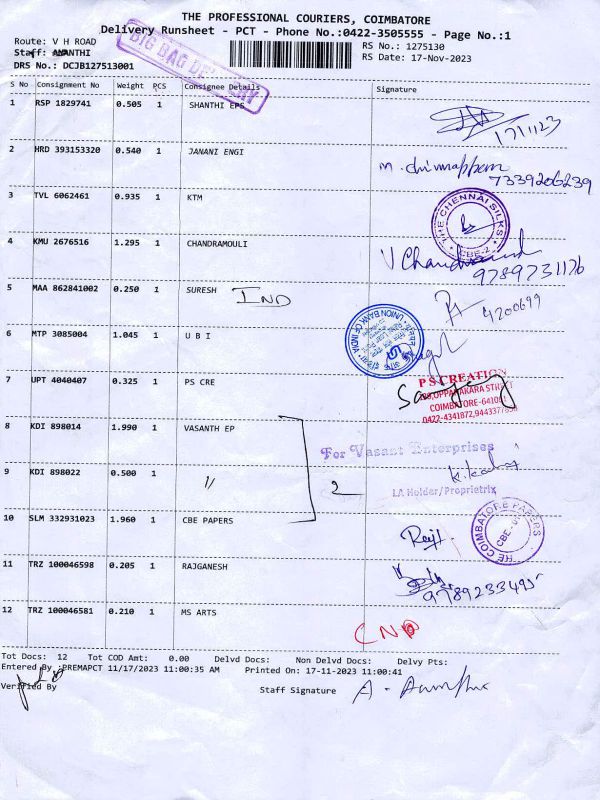 THE PROFESSIONAL COURIERS, COIMBATORE
Delivery Runsheet - PCT - Phone No.:0422-3505555 - Page No.:1
Route: V H ROAD
RS No.: 1275130
Staff: ANANTHI
RS Date: 17-Nov-2023
DRS No.: DCJB127513001
BIG BAG DELIVERY
S No Consignment No Weight PCS Consignee Details Signature
1 RSP 1829741 0.505 1 SHANTHI EPS
17/11/23
2 HRD 393153320 0.540 1 JANANI ENGI
7339206239
3 TVL 6062461 0.935 1 KTM
THE CHENNAI SILKS
CBE-2
4 KMU 2676516 1.295 1 CHANDRAMOULI
9789731176
5 MAA 862841002 0.250 1 SURESH IND
4200699
6 MTP 3085004 1.045 1 U B I
UNION BANK OF INDIA
7 UPT 4040407 0.325 1 PS CRE
PS CREATION
OPPANAKARA STREET
COIMBATORE-641001
8 KDI 898014 1.990 1 VASANTH EP
For Vasant Enterprises
9 KDI 898022 0.500 1 〃 2
LA Holder/Proprietrix
10 SLM 332931023 1.960 1 CBE PAPERS
THE COIMBATORE PAPERS
11 TRZ 100046598 0.205 1 RAJGANESH
9789233495
12 TRZ 100046581 0.210 1 MS ARTS
Tot Docs: 12 Tot COD Amt: 0.00 Delvd Docs: Non Delvd Docs: Delvy Pts:
Entered By :PREMAPCT 11/17/2023 11:00:35 AM Printed On: 17-11-2023 11:00:41
Verified By
Staff Signature